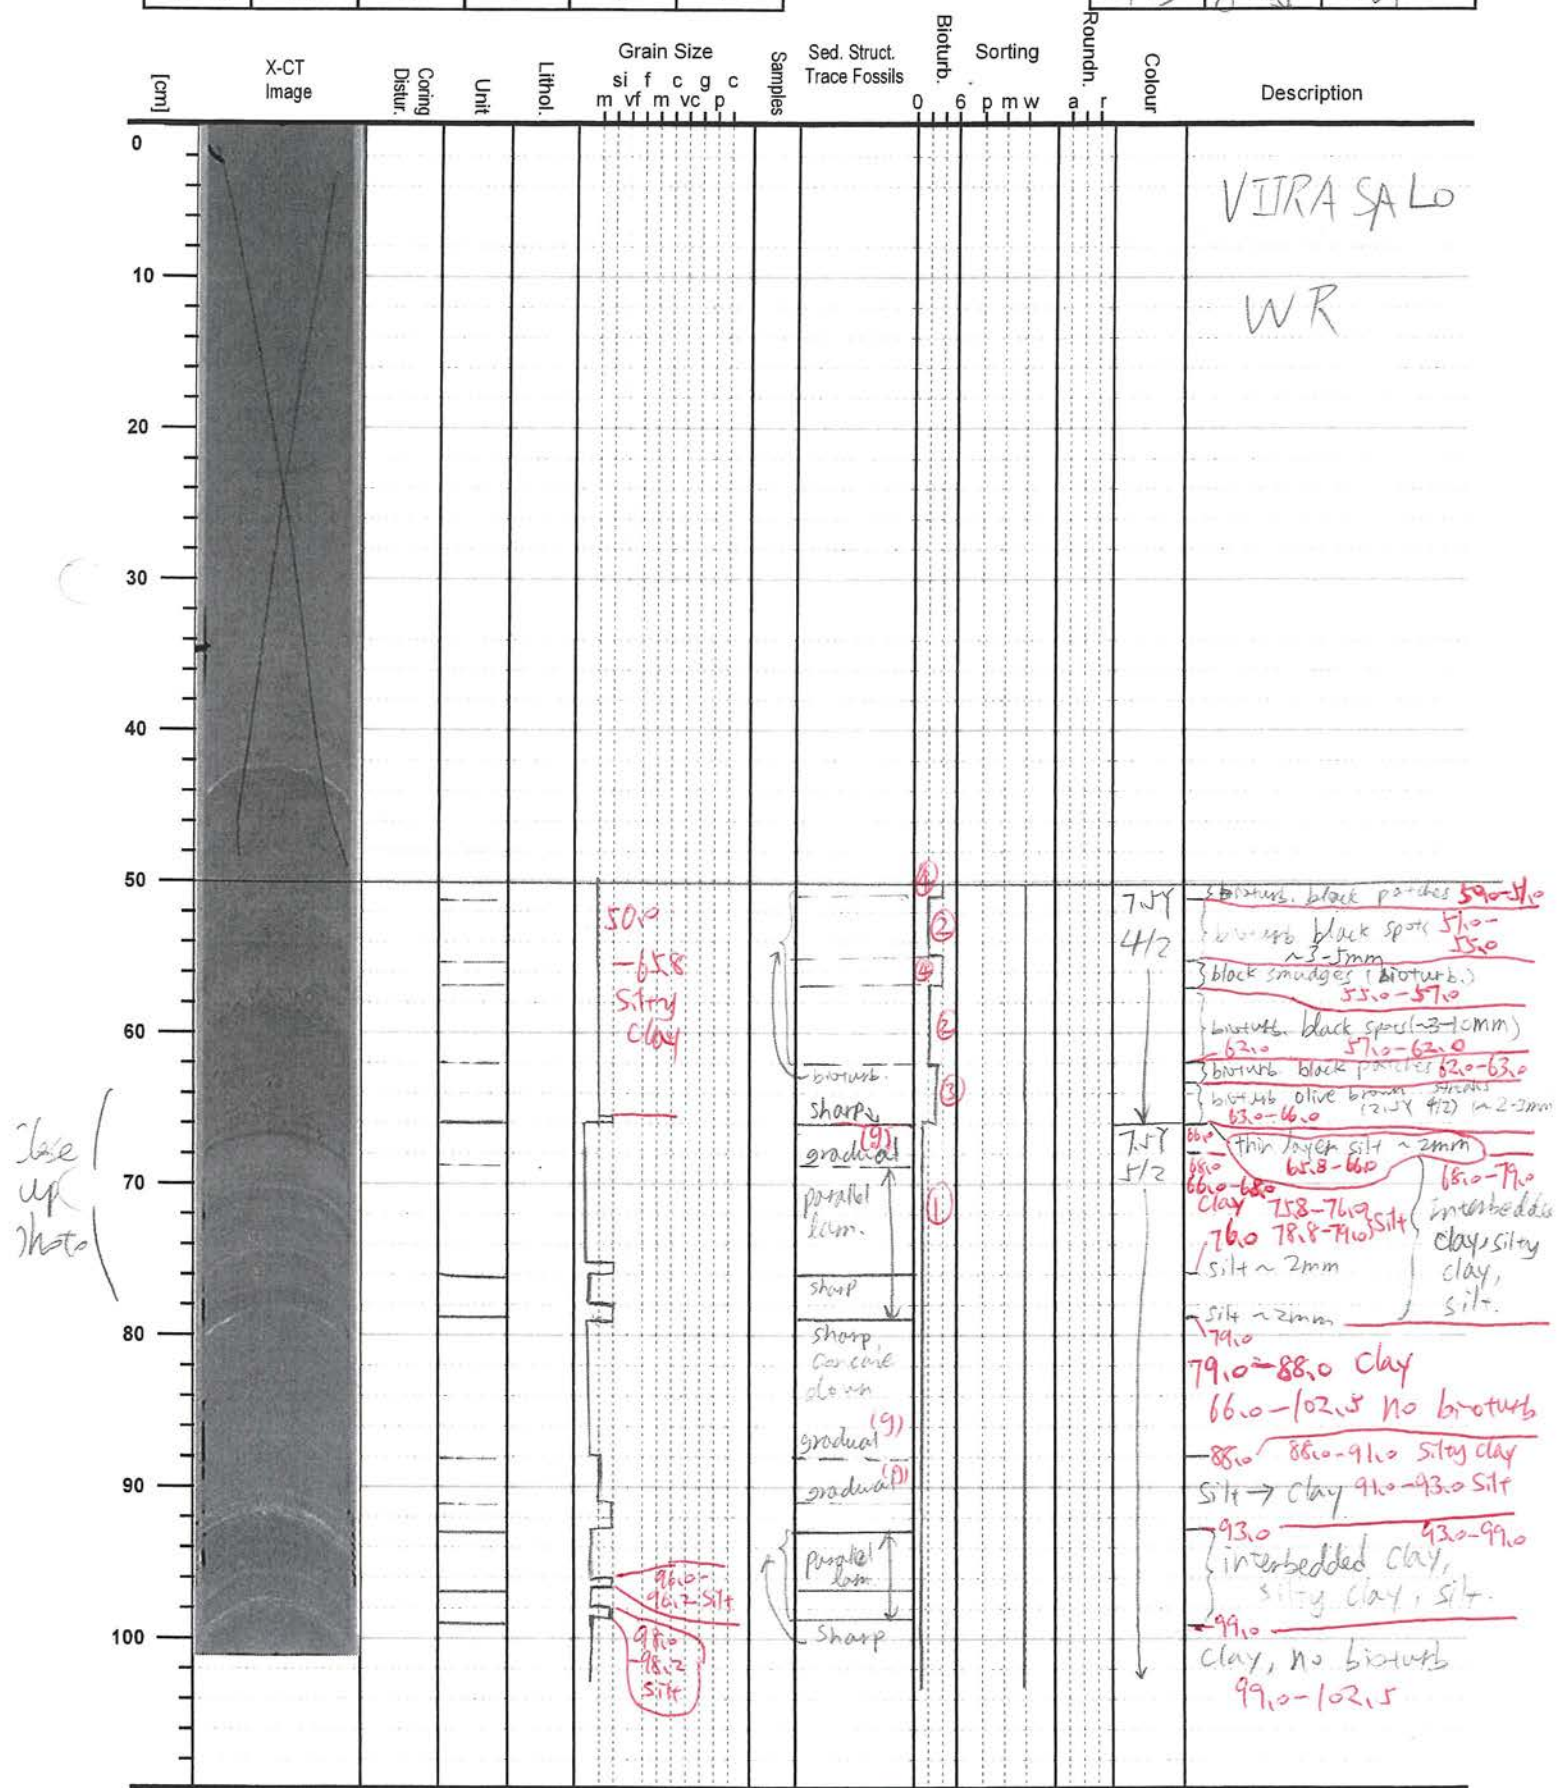 Grain Size
Bioturb.
Sorting
Roundn.
[cm]
X-CT
Image
Coring
Distur.
Unit
Lithol.
si f c g c
m vf m vc p
Samples
Sed. Struct.
Trace Fossils
0 6
p m w
a r
Colour
Description
0
10
20
30
40
50
60
70
80
90
100
VIJRA SALO
WR
Close
up
Photo
50.0
-65.8
Silty
Clay
96.0-
96.2 Silt
98.0
-98.2
Silt
bioturb.
sharp
(g)
gradual
parallel
lam.
sharp
sharp
concave
down
gradual (g)
gradual
parallel
lam.
Sharp
4
2
4
2
3
1
7.5Y
4/2
7.5Y
5/2
bioturb. black patches 50.0-51.0
bioturb black spots 51.0-
55.0
~3-5mm
black smudges (bioturb.)
55.0-57.0
bioturb. black spots (~3-10mm)
62.0 57.0-62.0
bioturb. black patches 62.0-63.0
bioturb olive brown streaks
63.0-66.0 (2.5Y 4/2) ~2-3mm
66.0 thin layer silt ~2mm
68.0 65.8-66.0 68.0-79.0
66.0-68.0
Clay 75.8-76.0
76.0 78.8-79.0 Silt
interbedded
clay, silty
clay,
silt.
silt ~ 2mm
silt ~2mm
79.0
79.0-88.0 Clay
66.0-102.5 no bioturb
88.0 88.0-91.0 Silty clay
Silt → clay 91.0-93.0 Silt
93.0 93.0-99.0
interbedded clay,
silty clay, silt.
99.0
clay, no bioturb
99.0-102.5